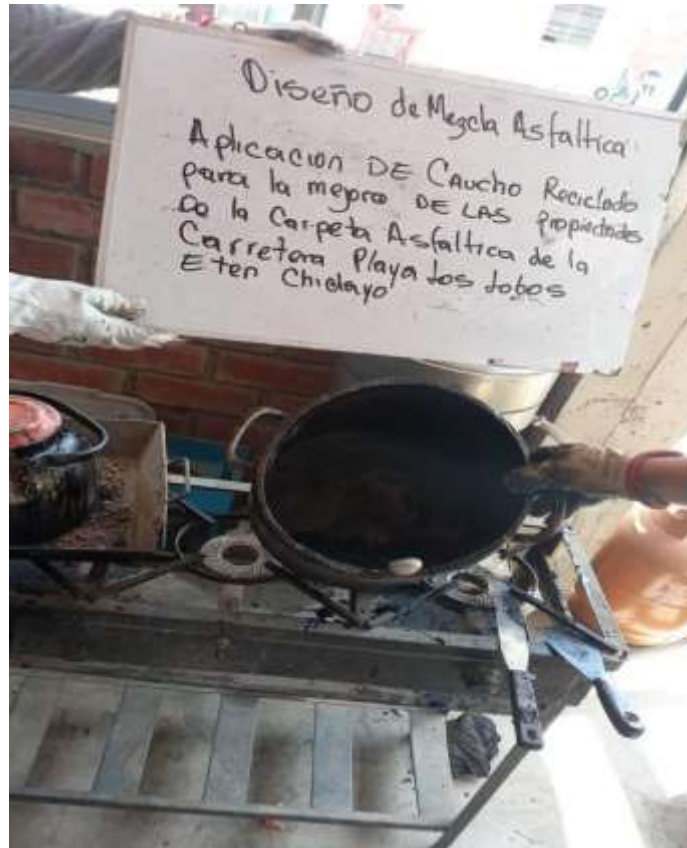 Diseño de Mezcla Asfaltica
Aplicacion DE Caucho Reciclado
para la mejora DE LAS propiedades
De la Carpeta Asfaltica de la
Carretera Playa Los Lobos
Eten Chiclayo